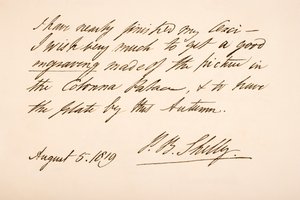 I have nearly finished my Cenci —
I wish very much to get a good
engraving made of the picture in
the Colonna Palace, & to have
the plate by this Autumn.
August 5. 1819
P. B. Shelley.